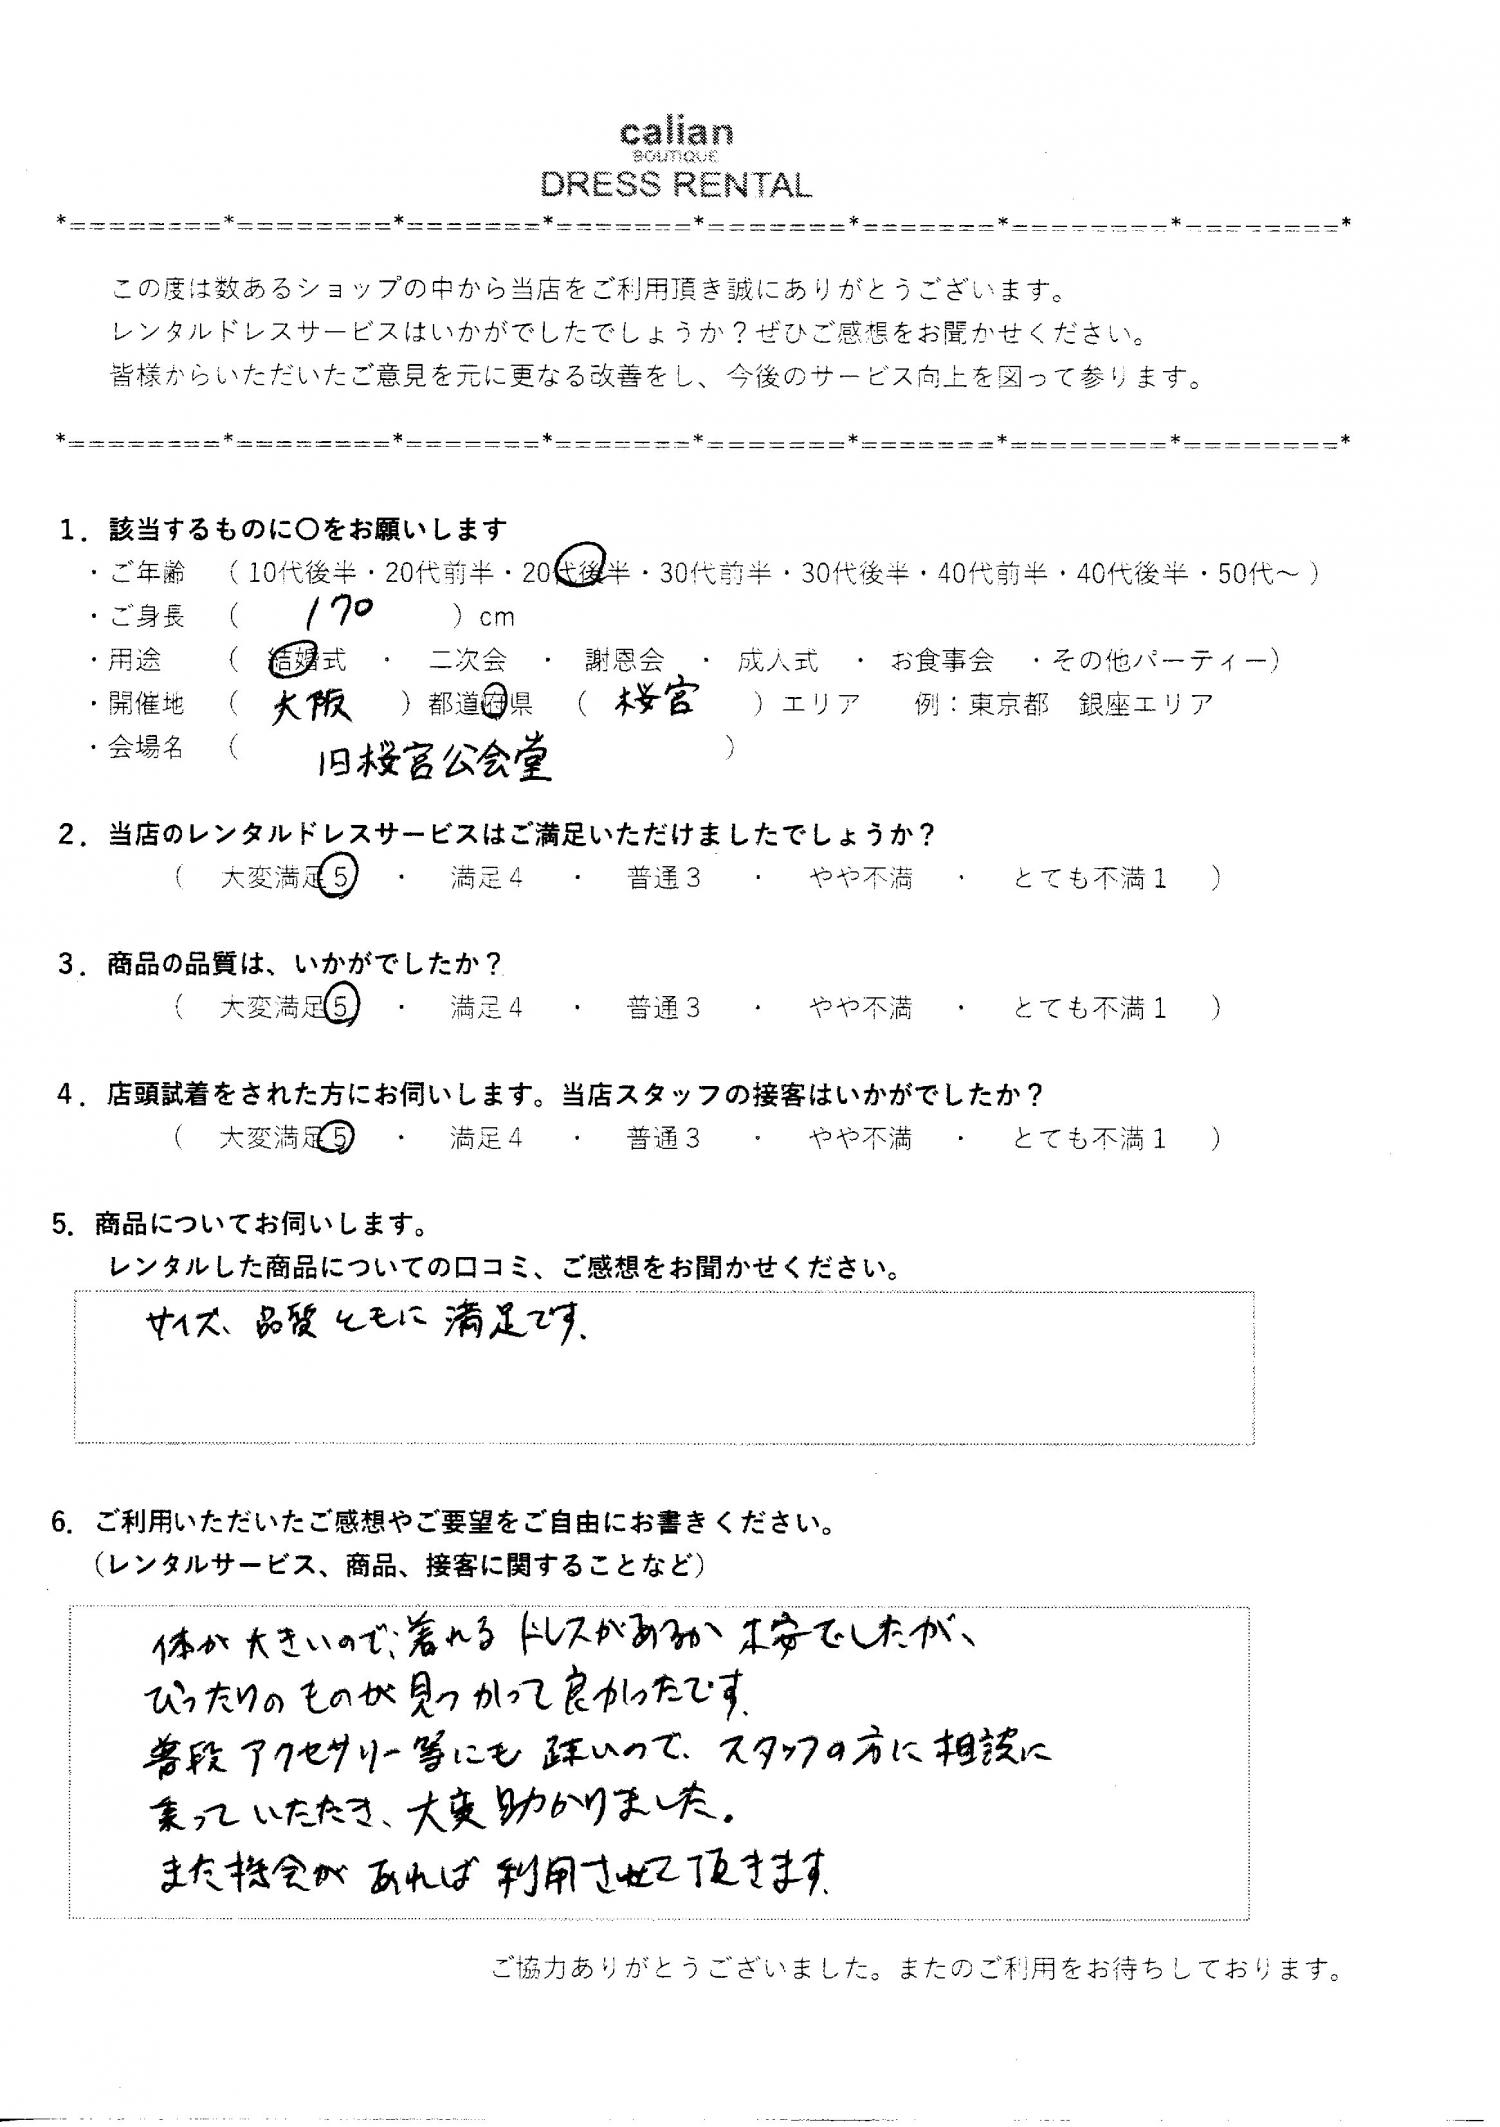 calian
BOUTIQUE
DRESS RENTAL
*========*========*=======*=======*=======*=======*========*========*
この度は数あるショップの中から当店をご利用頂き誠にありがとうございます。
レンタルドレスサービスはいかがでしたでしょうか？ぜひご感想をお聞かせください。
皆様からいただいたご意見を元に更なる改善をし、今後のサービス向上を図って参ります。
*========*========*=======*=======*=======*=======*========*========*
1．該当するものに〇をお願いします
・ご年齢 （ 10代後半・20代前半・20代後半・30代前半・30代後半・40代前半・40代後半・50代～ ）
・ご身長 （ 170 ）cm
・用途 （ 結婚式 ・ 二次会 ・ 謝恩会 ・ 成人式 ・ お食事会 ・その他パーティー）
・開催地 （ 大阪 ）都道府県 （ 桜宮 ）エリア 例：東京都 銀座エリア
・会場名 （ 旧桜宮公会堂 ）
2．当店のレンタルドレスサービスはご満足いただけましたでしょうか？
（ 大変満足5 ・ 満足4 ・ 普通3 ・ やや不満 ・ とても不満1 ）
3．商品の品質は、いかがでしたか？
（ 大変満足5 ・ 満足4 ・ 普通3 ・ やや不満 ・ とても不満1 ）
4．店頭試着をされた方にお伺いします。当店スタッフの接客はいかがでしたか？
（ 大変満足5 ・ 満足4 ・ 普通3 ・ やや不満 ・ とても不満1 ）
5．商品についてお伺いします。
レンタルした商品についての口コミ、ご感想をお聞かせください。
サイズ、品質ともに満足です。
6．ご利用いただいたご感想やご要望をご自由にお書きください。
（レンタルサービス、商品、接客に関することなど）
体が大きいので、着れるドレスがあるか不安でしたが、
ぴったりのものが見つかって良かったです。
普段アクセサリー等にも疎いので、スタッフの方に相談に
乗っていただき、大変助かりました。
また機会があれば利用させて頂きます。
ご協力ありがとうございました。またのご利用をお待ちしております。